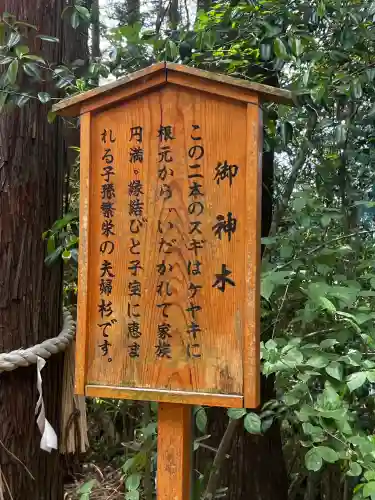 御神木
この二本のスギはケヤキに
根元から、いだかれて家族
円満、縁結びと子宝に恵ま
れる子孫繁栄の夫婦杉です